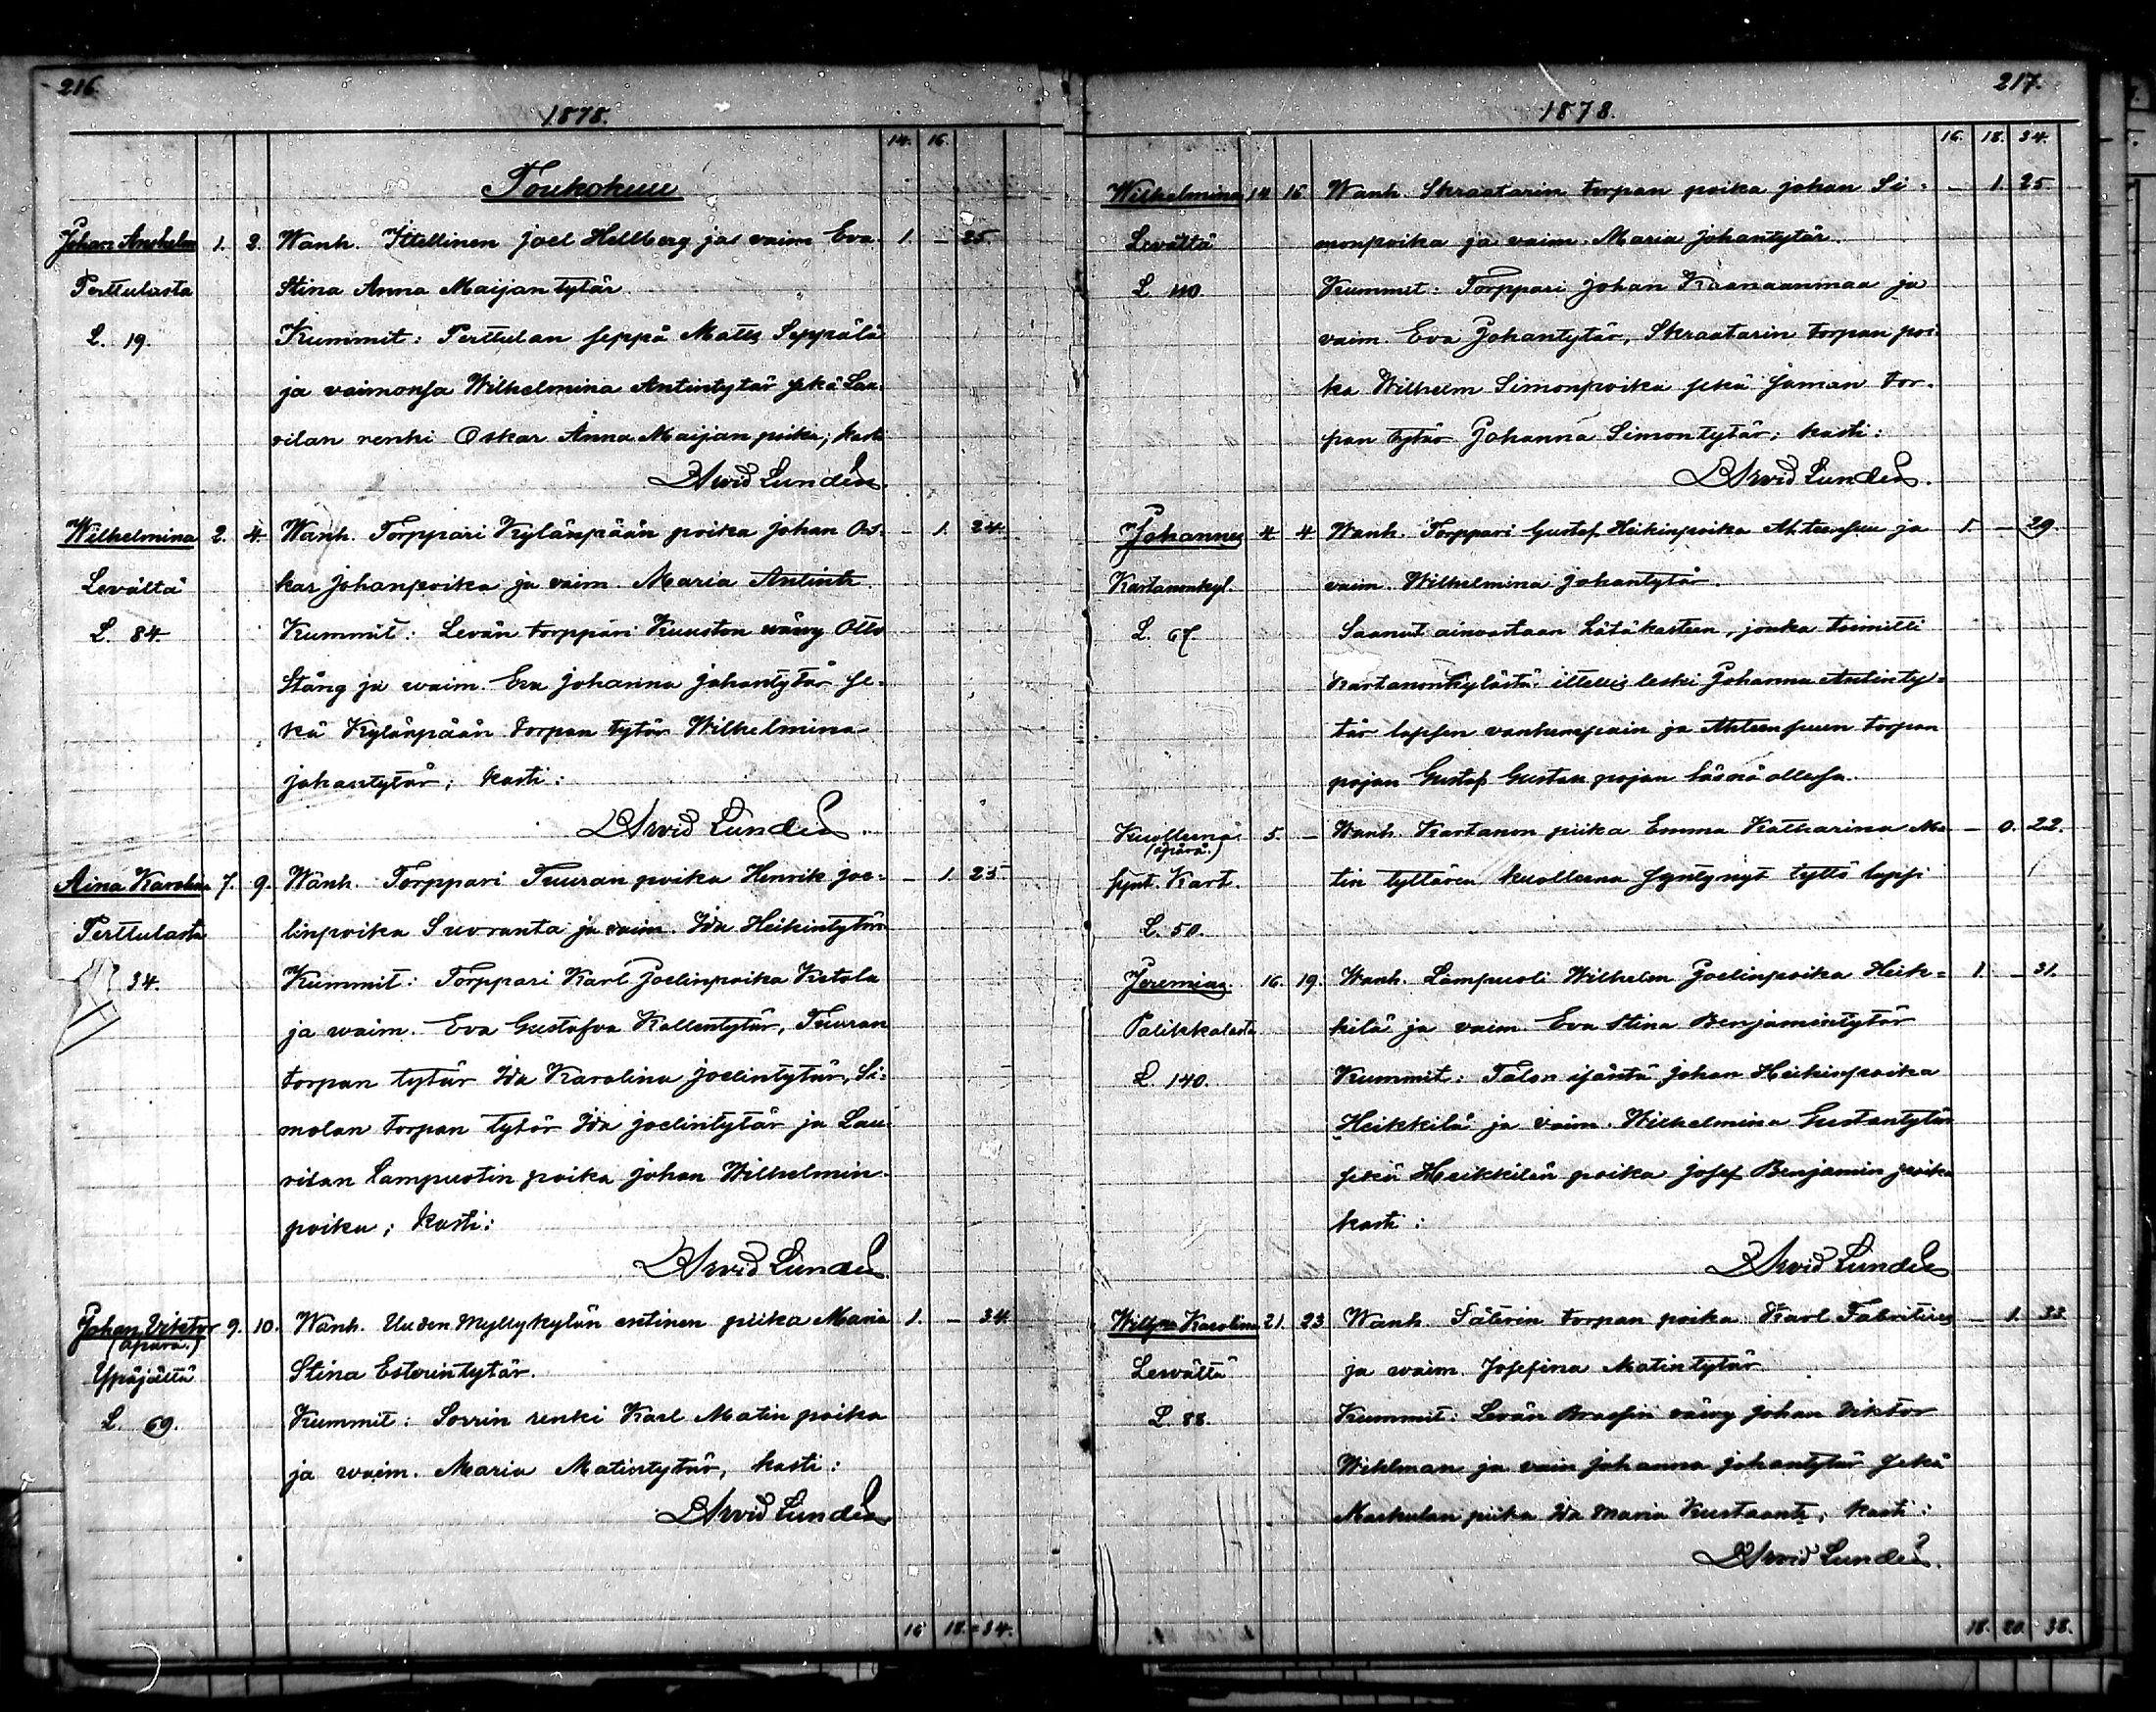 216.
1878.
14. 16.
Toukokuu
Johan Anshelm 1. 2. Wanh. Itellinen Joel Hellberg ja vaim Eva 1. – 25.
Perttulasta Stina Anna Maijantytär
L. 19. Kummit: Perttulan seppä Matts Seppälä
ja vaimonsa Wilhelmina Antintytär sekä Lau-
rilan renki Oskar Anna Maijanpoika; kasti
Arvid Lundén.
Wilhelmina 2. 4. Wanh. Torppari Kylänpään poika Johan Os- – 1. 24.
Levältä kar Johanpoika ja vaim. Maria Antintr
L. 84. Kummit: Levän torppari Kuuston vävy Otto
Stång ja waim. Eva Johanna Johantytär se-
kä Kylänpään torpan tytär Wilhelmina
Johantytär; kasti:
Arvid Lundén.
Aina Karolina 7. 9. Wanh. Torppari Tuuran poika Henrik Joe- – 1. 25
Perttulasta linpoika Suoranta ja vaim. Ida Heikintytär
34. Kummit: Torppari Karl Joelinpoika Ketola
ja waim. Eva Gustafva Kallentytär, Tuuran
torpan tytär Ida Karolina Joelintytär, Si-
molan torpan tytär Ida Joelintytär ja Lau-
rilan Lampuotin poika Johan Wilhelmin-
poika; kasti:
Arvid Lundén
Johan Viktor 9. 10. Wanh. Uuden Myllykylän entinen piika Maria 1. – 34.
(äpärä.)
Ypäjältä Stina Esterintytär.
L. 69. Kummit: Sorrin renki Karl Matinpoika
ja waim. Maria Matintytär, kasti:
Arvid Lundén
16 18. = 34.
217.
1878.
16. 18. 34.
Wilhelmina 14 16 Wanh. Skraatarin torpan poika Johan Si- – 1. 25
Levältä monpoika ja vaim. Maria Johantytär.
L. 110. Kummit: Torppari Johan Kaanaanmaa ja
vaim. Eva Johantytär, Skraatarin torpan poi-
ka Wilhelm Simonpoika sekä saman tor-
pan tytär Johanna Simontytär; kasti:
Arvid Lundén.
Johannes 4 4 Wanh. Torppari Gustaf Heikinpoika Ahteensuu ja 1. – 29.
Kartanonkyl. vaim. Wilhelmina Johantytär.
L. 67. Saanut ainoastaan hätäkasteen, jonka toimitti
Kartanonkylästä ittellis leski Johanna Antinty-
tär lapsen vanhempain ja Ahteensuun torpan
pojan Gustaf Gustanpojan läsnä ollessa.
Kuolleena 5. – Wanh. Kartanon piika Emma Katharina Ma- – 0. 22.
(äpärä.)
synt. Kart. tin tyttären kuolleena syntynyt tyttö lapsi
L. 50.
Jeremias. 16. 19. Wanh. Lampuoti Wilhelm Joelinpoika Heik- 1. – 31.
Palikkalasta kilä ja vaim. Eva Stina Benjamintytär
L. 140. Kummit: Talon isäntä Johan Heikinpoika
Heikkilä ja vaim. Wilhelmina Gustantytär
sekä Heikkilän poika Josef Benjamin poika
kasti:
Arvid Lundén
Wilhna Karolina 21. 23 Wanh. Säterin torpan poika Karl Fabritius – 1. 33.
Levältä ja waim. Josefina Matintytär
L 88. Kummit: Levän Brassin vävy Johan Viktor
Wihlman ja vaim Johanna Johantytär sekä
Markulan piika Ida Maria Kustaantr; kasti:
Arvid Lundén.
18. 20. 38.